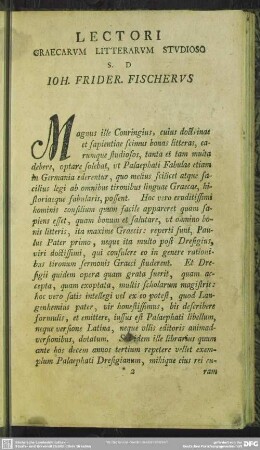 LECTORI
GRAECARVM LITTERARVM STVDIOSO
S. D
IOH. FRIDER. FISCHERVS
Magnus ille Conringius, cuius doctrinae
et sapientiae scimus bonas litteras, ea-
rumque studiosos, tanta et tam multa
debere, optare solebat, vt Palaephati Fabulae etiam
in Germania ederentur, quo melius scilicet atque fa-
cilius legi ab omnibus tironibus linguae Graecae, hi-
storiaeque fabularis, possent. Hoc vero eruditissimi
hominis consilium quum facile appareret quam sa-
piens esset, quam bonum et salutare, vt omnino bo-
nis litteris, ita maxime Graecis: reperti sunt, Pau-
lus Pater primo, neque ita multo post Dresigius,
viri doctissimi, qui consulere eo in genere rationi-
bus tironum sermonis Graeci studerent. Et Dre-
sigii quidem opera quam grata fuerit, quam ac-
cepta, quam exoptata, multis scholarum magistris:
hoc vero satis intellegi vel ex eo potest, quod Lan-
genhemius pater, vir honestissimus, bis describere
formulis, et emittere, iussus est Palaephati libellum,
neque versione Latina, neque vllis editoris animad-
versionibus, dotatum. ille librarius quum
ante hos decem annos tertium repetere vellet exem-
plum Palaephati Dresigianum, mihique eius rei cu-
* 2 ram